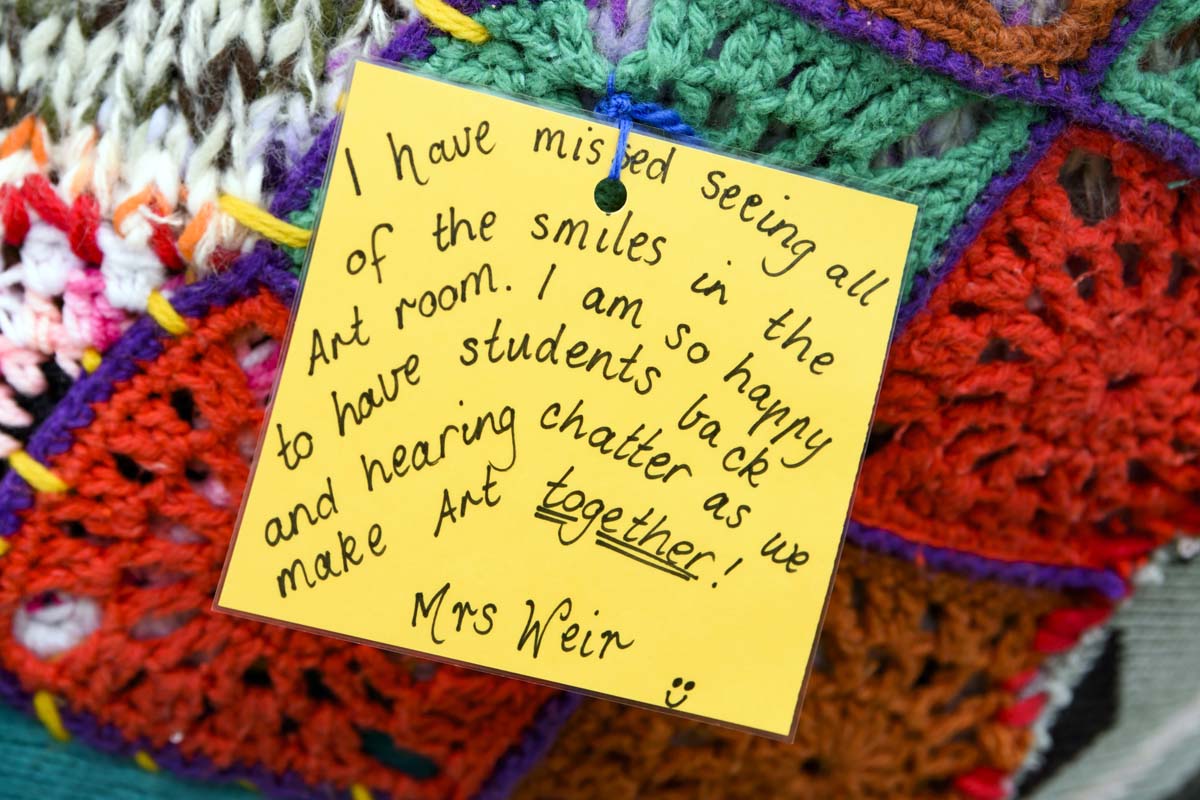 I have missed seeing all
of the smiles in the
Art room. I am so happy
to have students back
and hearing chatter as we
make Art together!
Mrs Weir